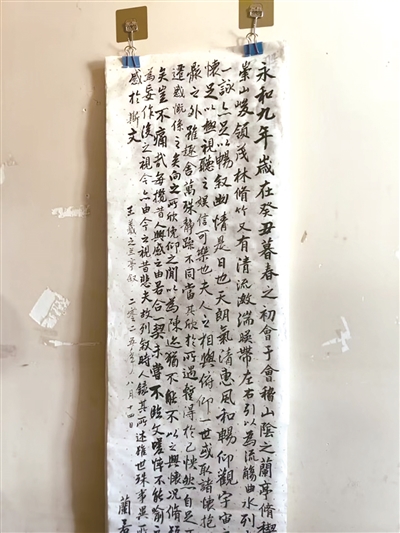 永和九年歲在癸丑暮春之初會于會稽山陰之蘭亭脩禊
崇山峻領茂林脩竹又有清流激湍暎帶左右引以為流觴曲水列
一詠亦足以暢叙幽情是日也天朗氣清惠風和暢仰觀宇宙
懷足以極視聽之娛信可樂也夫人之相與俯仰一世或取諸懷抱
骸之外雖趣舍萬殊靜躁不同當其欣於所遇蹔得於己怏然自足
遷感慨係之矣向之所欣俛仰之閒以為陳迹猶不能不以之興懷況脩短
矣豈不痛哉每攬昔人興感之由若合一契未嘗不臨文嗟悼不能喻
為妄作後之視今亦由今之視昔悲夫故列叙時人錄其所述雖世殊事異所
感於斯文
王羲之蘭亭叙 二零二五年八月十四日 蘭若